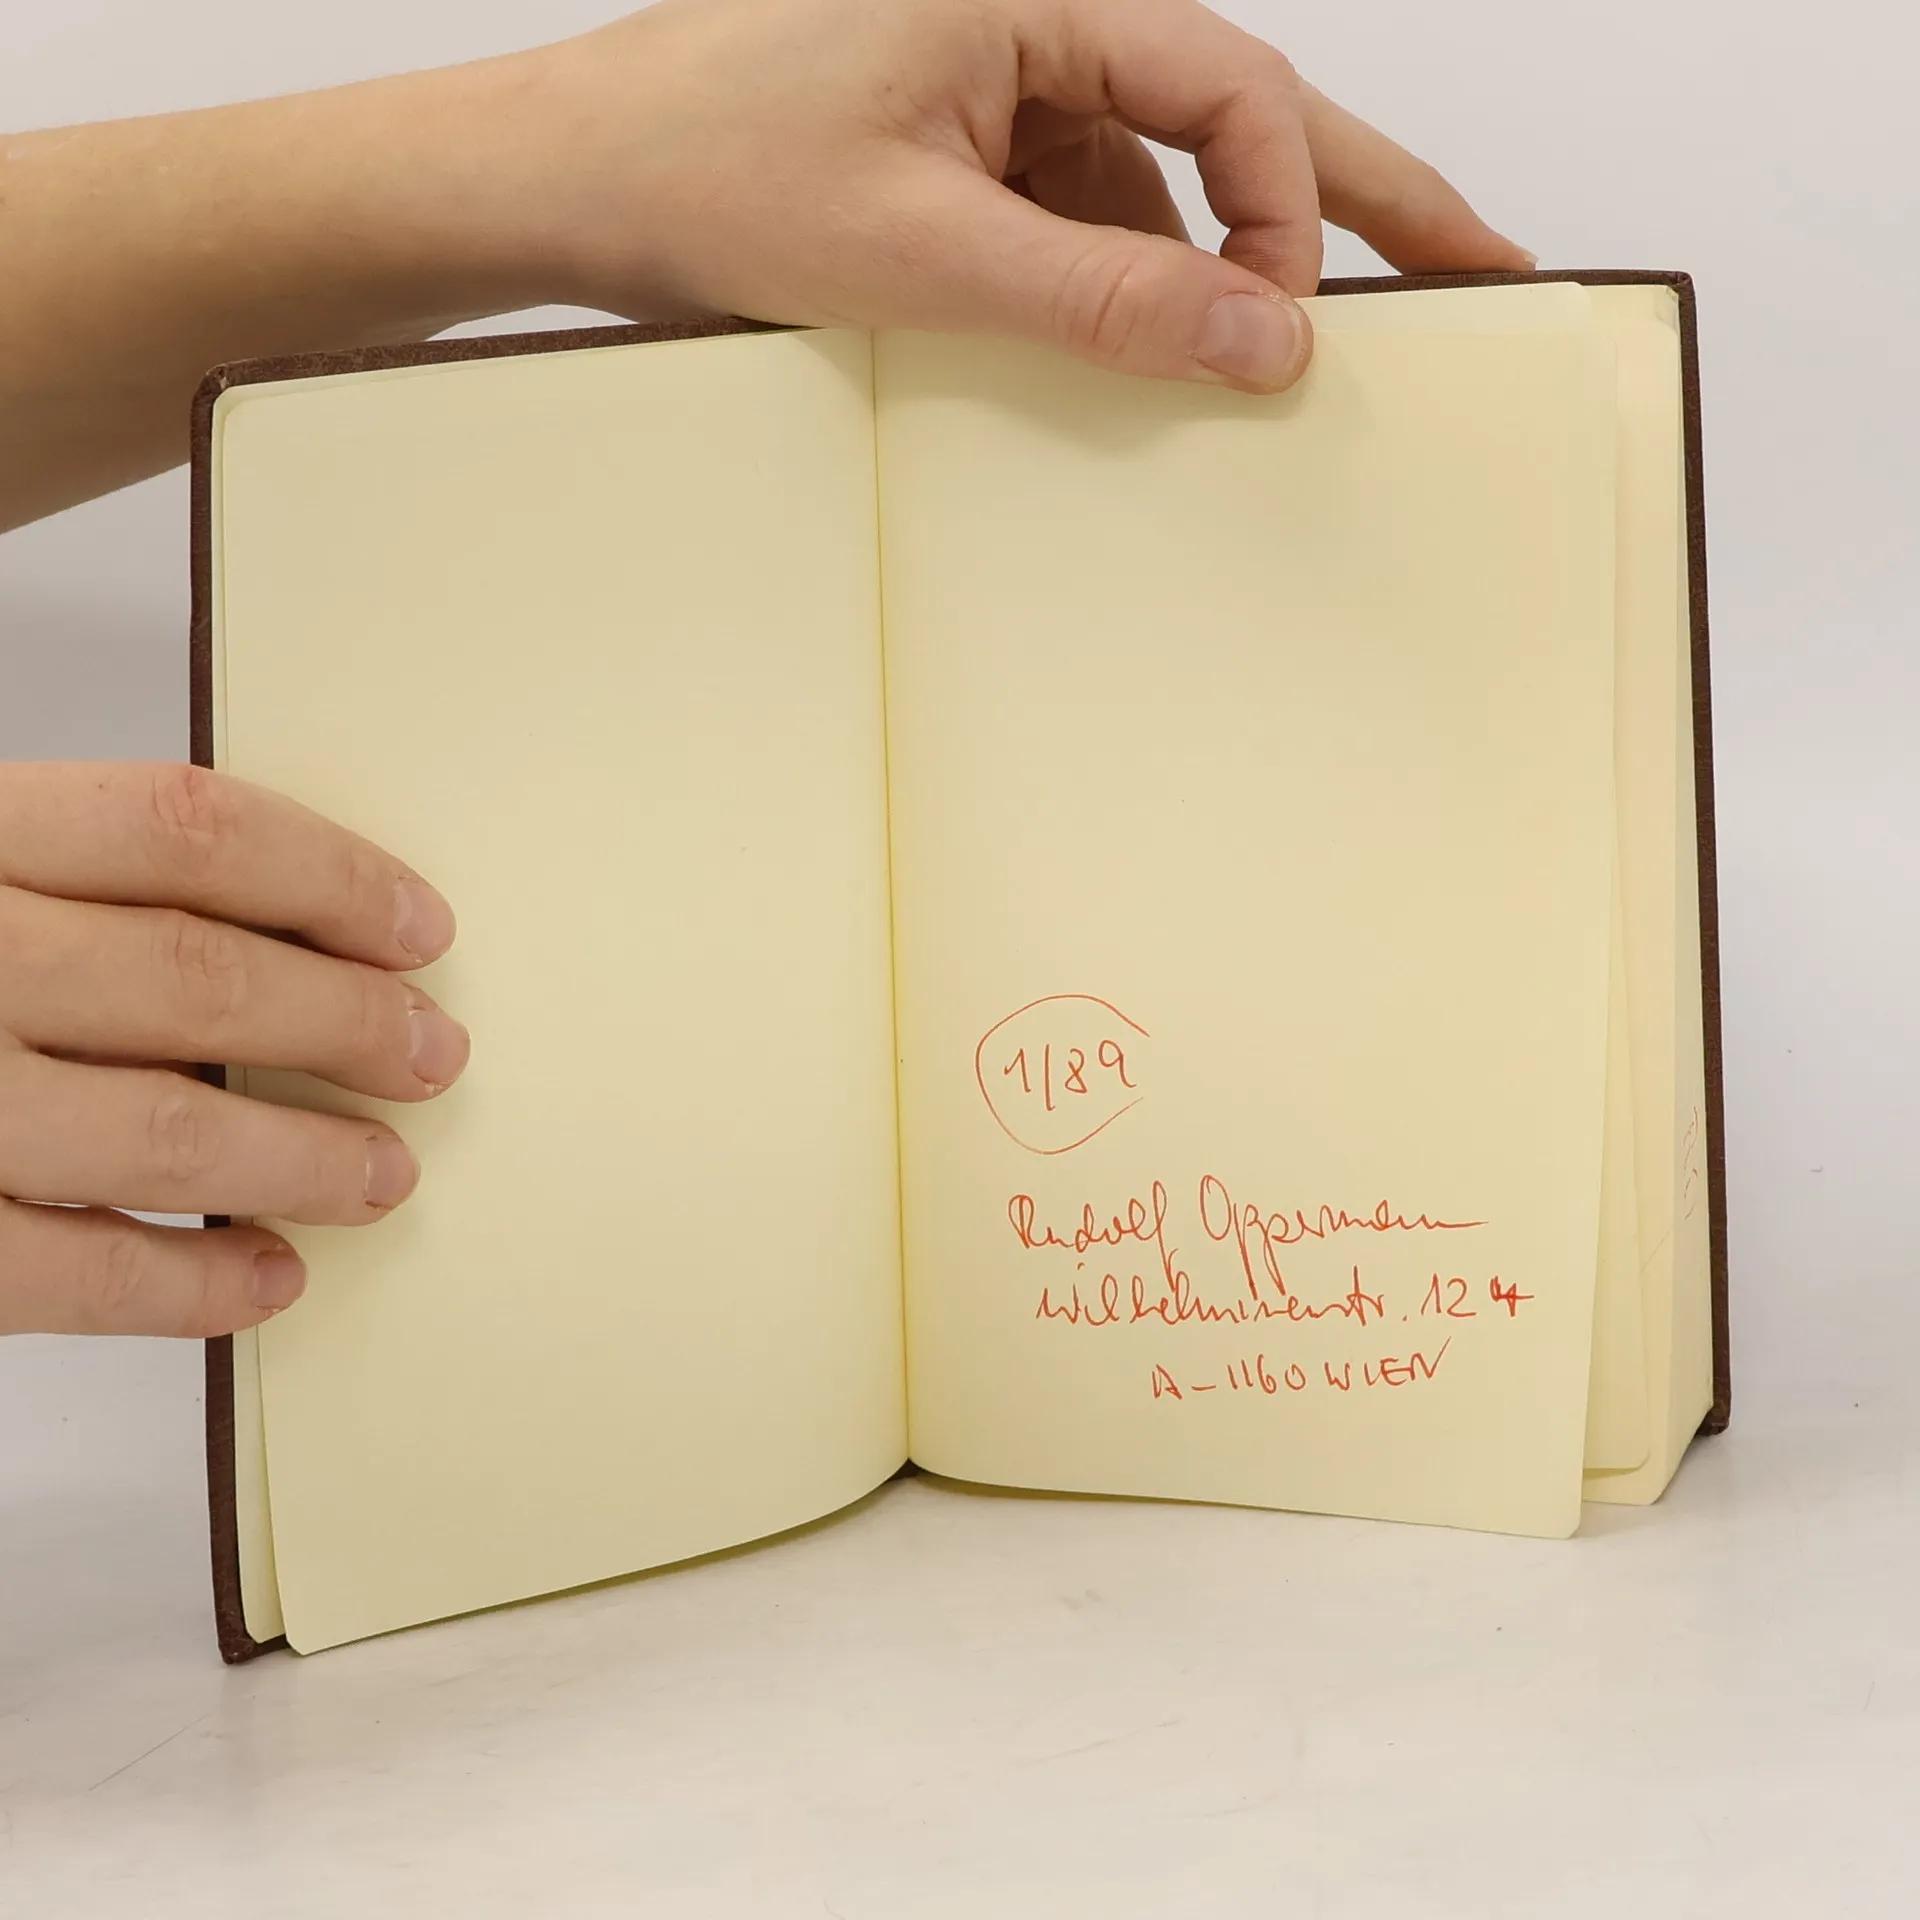 1/89
Rudolf Oppermann
Wilhelminenstr. 124
A-1160 WIEN